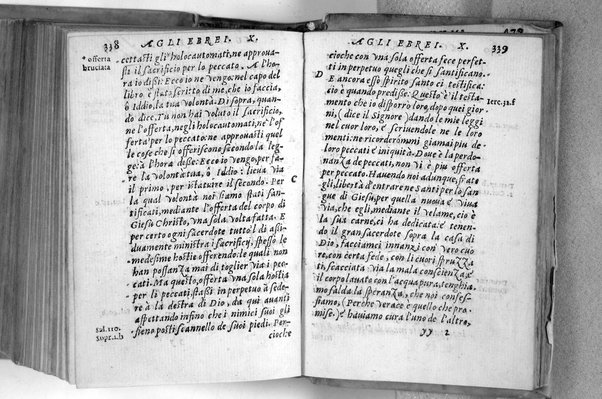 338 AGLI EBREI. X.
*offerta
bruciata
cettasti gli *holocautomati, ne approua-
sti il sacrificio per lo peccato. Alho-
ra io dissi: Ecco io ne vengo: nel capo del
libro è stato scritto di me, che io faccia,
ò Iddio, la tua volontà. Di sopra, quan-
do dice, Tu non hai voluto il sacrificio,
ne l'offerta, negli holocautomati, ne l'of
ferta per lo peccato: ne approuasti quel
le cose che si offeriscono secondo la leg-
ge: à l'hora disse: Ecco io vengo, per fa-
re la volontà tua, ò Iddio: lieua via
il primo, per istatuire il secondo. Per
C
la qual volontà noi siamo stati san-
tificati, mediante l'offerta del corpo di
Giesù Christo, vna sola volta fatta. E
per certo ogni sacerdote tutto l dì asi-
duamente ministra i sacrificij, spesso le
medesime hostie offerendo: le quali non
han possanza mai di toglier via i pec-
cati. Ma questo, offerta vna sola hostia
per li peccati, stassi in perpetuo à sede-
re à la destra di Dio, da qui auanti
aspettando infino che i nimici suoi gli
Sal. 110.
Supr. 1. b
sieno posti scannello de suoi piedi. Per-
cioche
AGLI EBREI. X. 339
cioche con vna sola offerta fece perfet-
ti in perpetuo quegli che si santificano.
D
E ancora esso spirito santo ci testifica:
cio è quando predisse: Questo è il testa-
Iere. 31. f
mento che io disporrò loro, dopo quei gior
ni, (dice il Signore) dando le mie leggi
nel cuor loro, e scriuendole ne le loro
menti: ne ricorderommi giamai piu de-
loro peccati è iniquità. Doue è la perdo-
nanza de peccati, non vi è piu offerta
per peccato. Hauendo noi adunque, frate
gli, libertà d'entrare ne santi per lo san-
gue di Giesù, per quella nuoua è viua
via, che egli, mediante il velame, cio è
la sua carne, ci ha dedicata: è tenen-
do il gran sacerdote sopra la casa di
Dio, facciamci innanzi con vero cuo
re, con certa fede, con li cuori spruzza
ti, scacciata via la mala conscienza: è
il corpo lauato con l'acqua pura, tenghia-
mo salda la speranza, che noi confes-
siamo, (Perche verace è quello che pro-
mise.) è hauiamo cura l'uno de l'altro,
yy 2